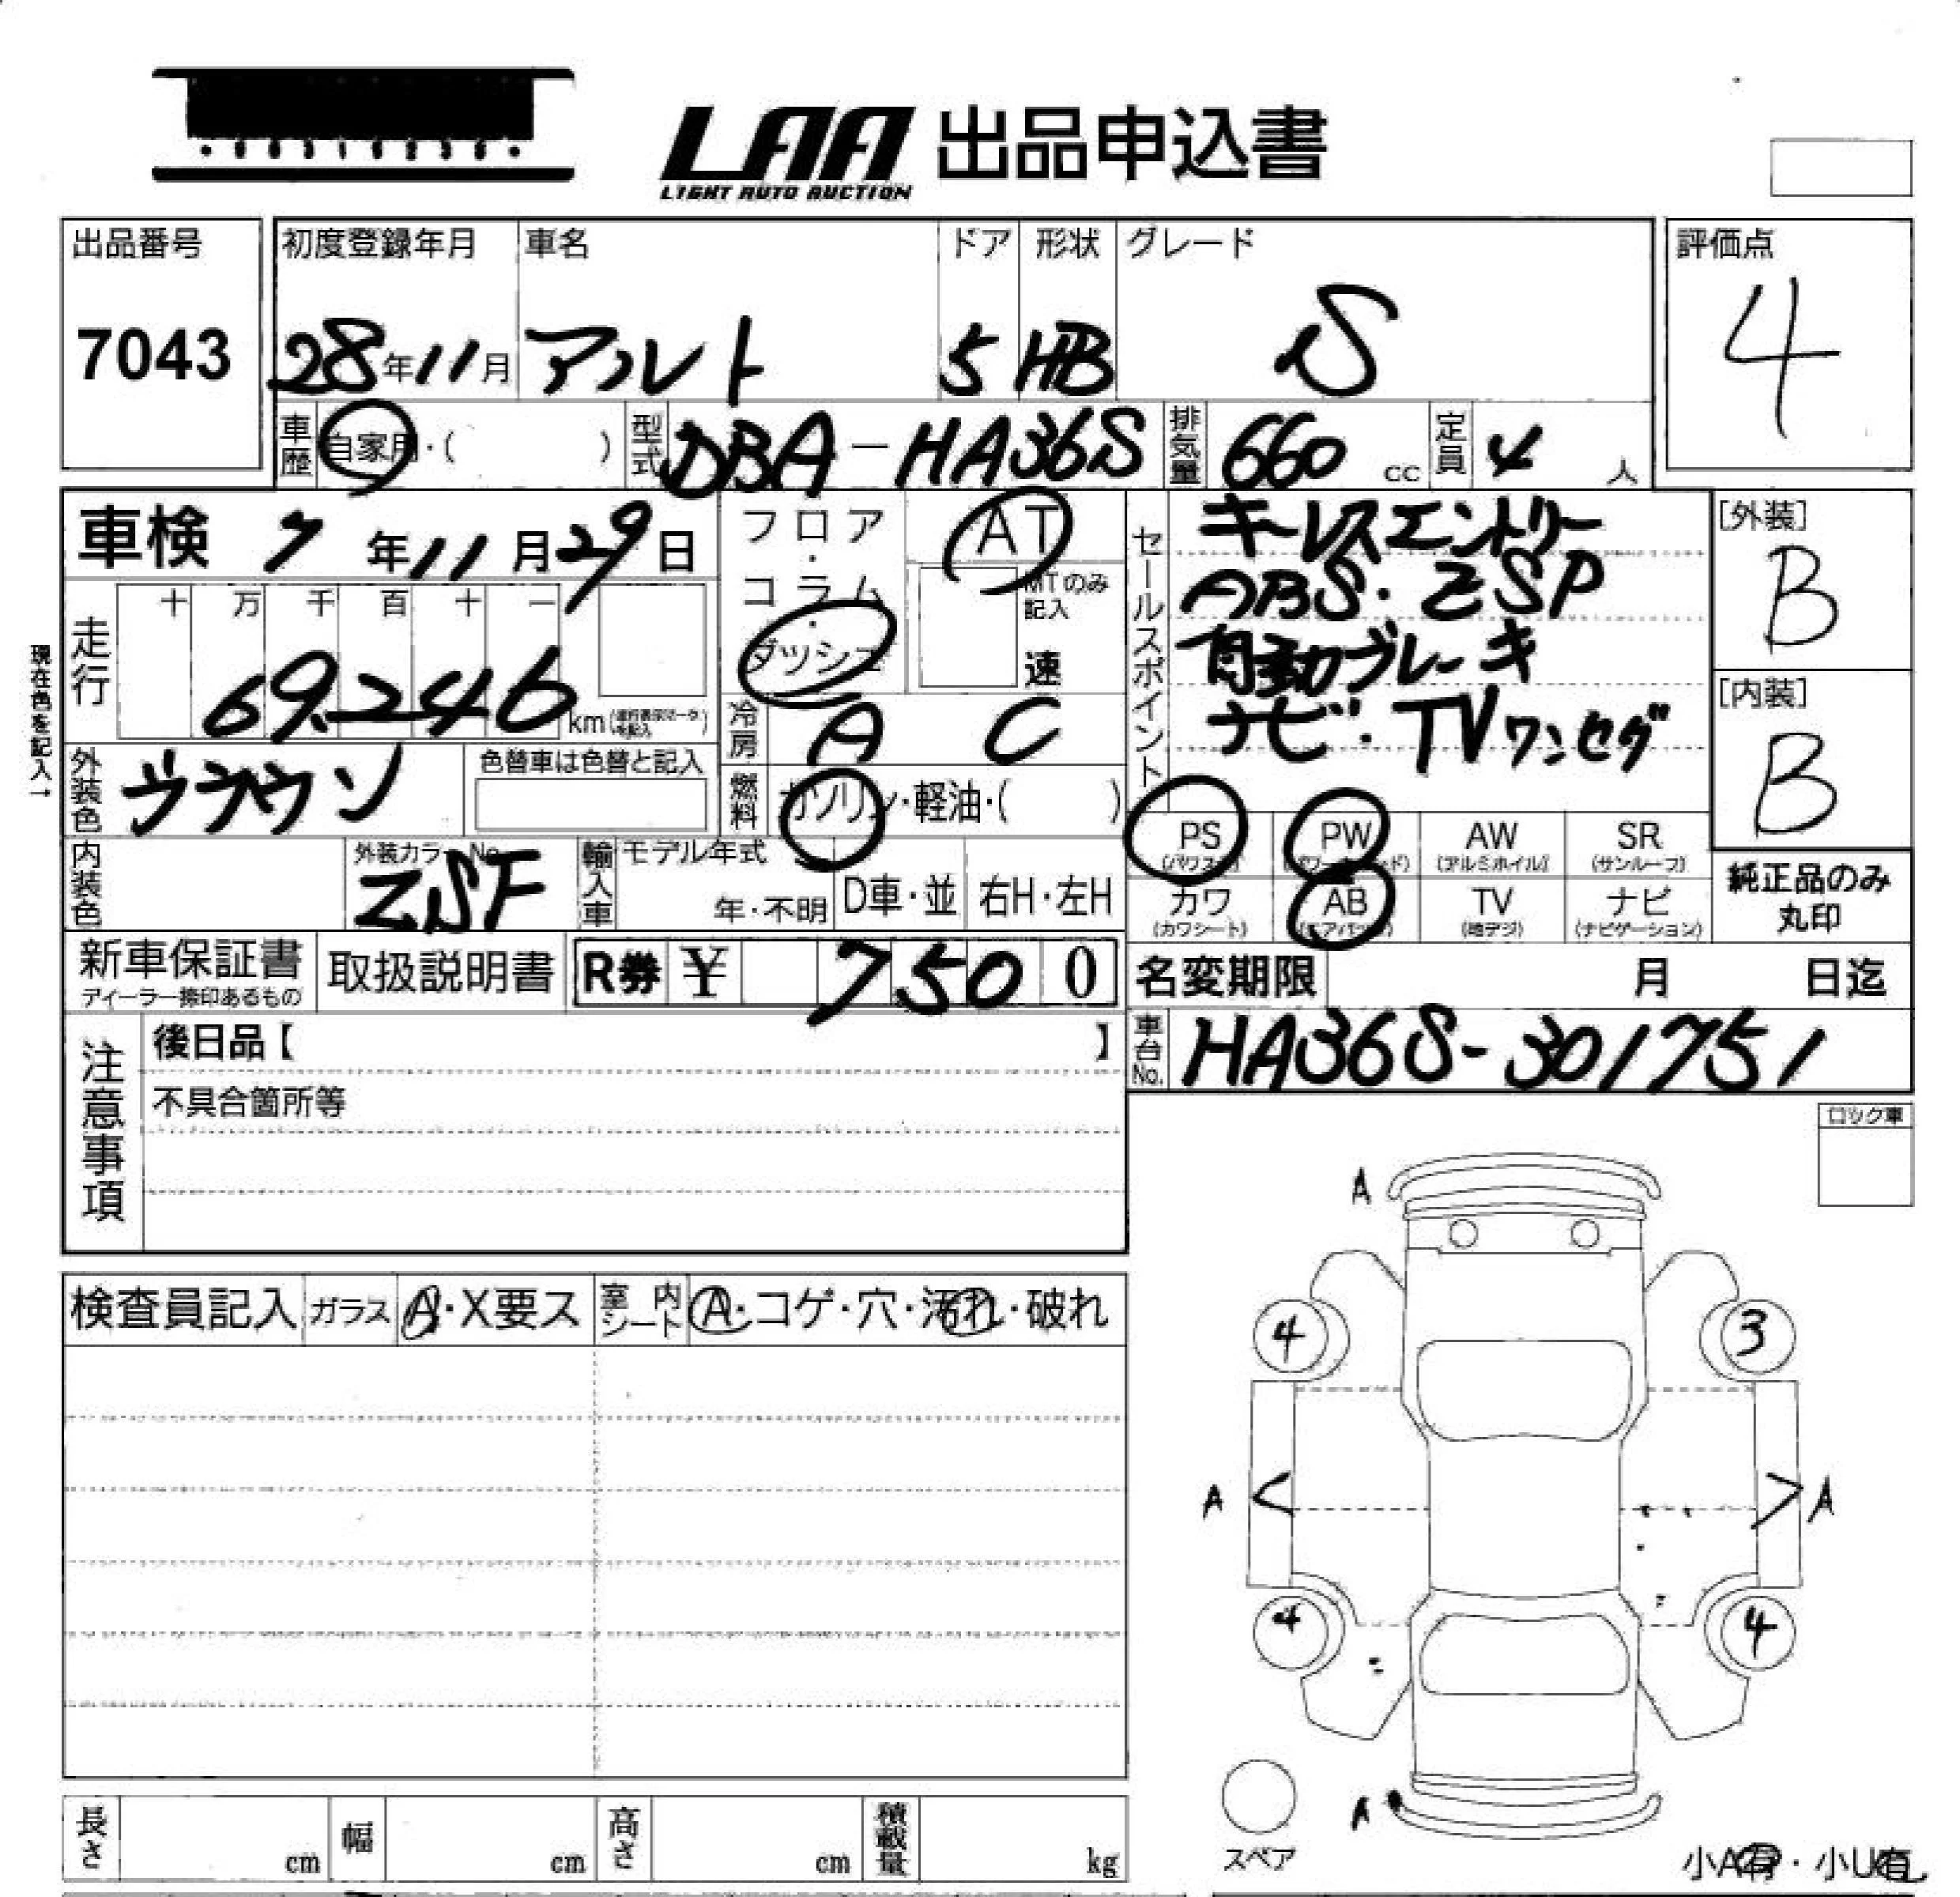 LAA 出品申込書
LIGHT AUTO AUCTION
出品番号
7043
初度登録年月
28年11月
車名
アルト
ドア
5
形状
HB
グレード
S
評価点
4
車歴 自家用・( )
型式 DBA-HA36S
排気量 660 cc
定員 4 人
車検 7年11月29日
フロア・コラム・ダッシュ
AT
MTのみ記入
速
セールスポイント
キーレスエントリー
ABS・ESP
自動ブレーキ
ナビ・TVワンセグ
[外装]
B
[内装]
B
現在色を記入→
走行 十 万 千 百 十 一
69,246 km
冷房 A C
外装色 ブラウン
色替車は色替と記入
燃料 ガソリン・軽油・( )
PS (パワステ)
PW (パワーウインド)
AW (アルミホイル)
SR (サンルーフ)
カワ (カワシート)
AB (エアバッグ)
TV (地デジ)
ナビ (ナビゲーション)
純正品のみ
丸印
内装色
外装カラーNo.
ZSF
輸入車 モデル年式
年・不明
D車・並
右H・左H
新車保証書
ディーラー捺印あるもの
取扱説明書
R券 ¥ 7500
名変期限 月 日迄
車台No. HA36S-301751
注意事項
後日品【 】
不具合箇所等
ロック車
検査員記入 ガラス A・X要ス
室内シート A・コゲ・穴・汚れ・破れ
A
4
3
A
A
4
4
A
スペア
小A有・小U有
長さ cm
幅 cm
高さ cm
積載量 kg